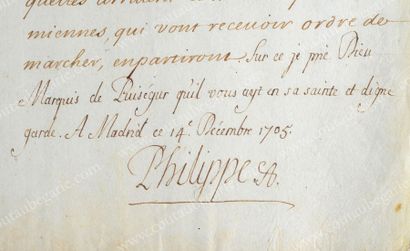 miennes, qui vont recevoir ordre de
marcher, en partiront. Sur ce je prie Dieu
Marquis de Puiségur qu'il vous ayt en sa sainte et digne
garde. A Madrid ce 14e. Décembre 1705.
Philippe